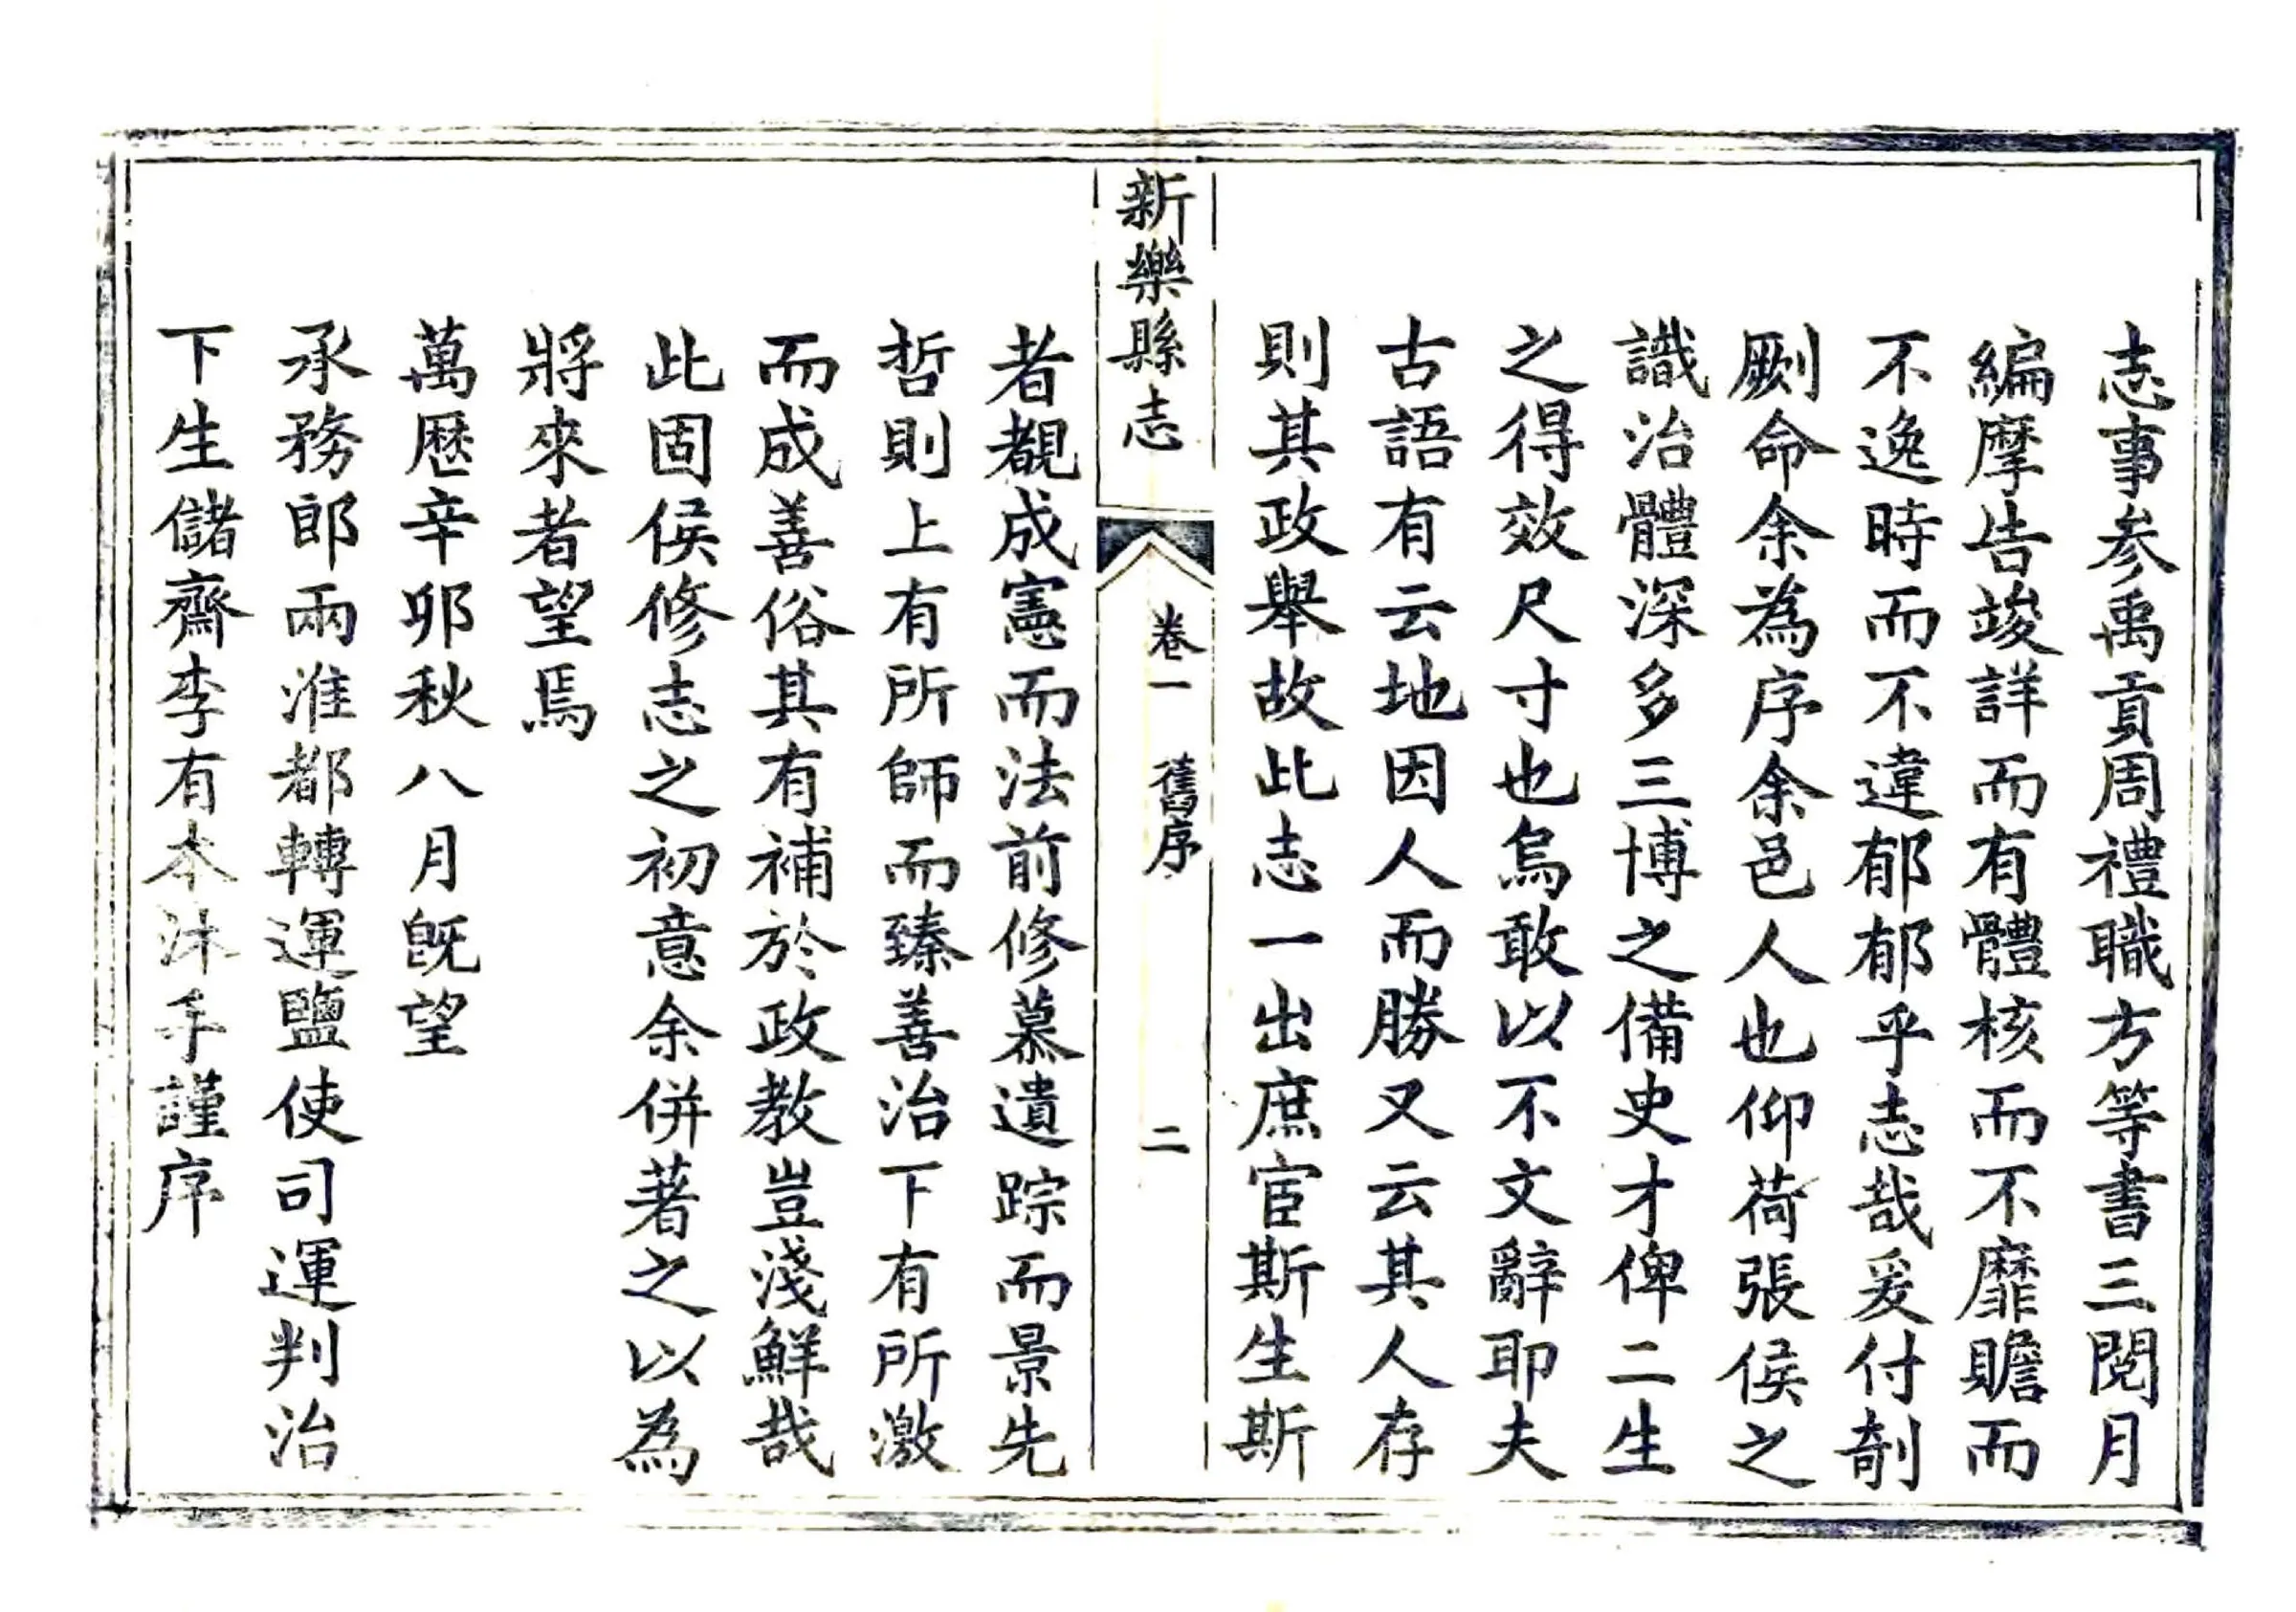 志事参禹貢周禮職方等書三閱月
編摩告竣詳而有體核而不靡贍而
不逸時而不違郁郁乎志哉爰付剞
劂命余為序余邑人也仰荷張侯之
識治體深多三博之備史才俾二生
之得效尺寸也烏敢以不文辭耶夫
古語有云地因人而勝又云其人存
則其政舉故此志一出庶宦斯生斯
新樂縣志
卷一
舊序
二
者覩成憲而法前修慕遺踪而景先
哲則上有所師而臻善治下有所激
而成善俗其有補於政教豈淺鮮哉
此固侯修志之初意余併著之以為
將來者望焉
萬歷辛卯秋八月旣望
承務郎兩淮都轉運鹽使司運判治
下生儲齋李有本沐手謹序